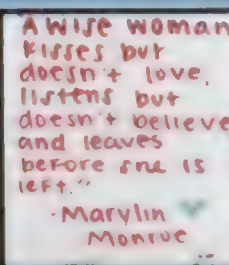 A wise woman
kisses but
doesn't love,
listens but
doesn't believe
and leaves
before she is
left."
- Marylin
Monroe